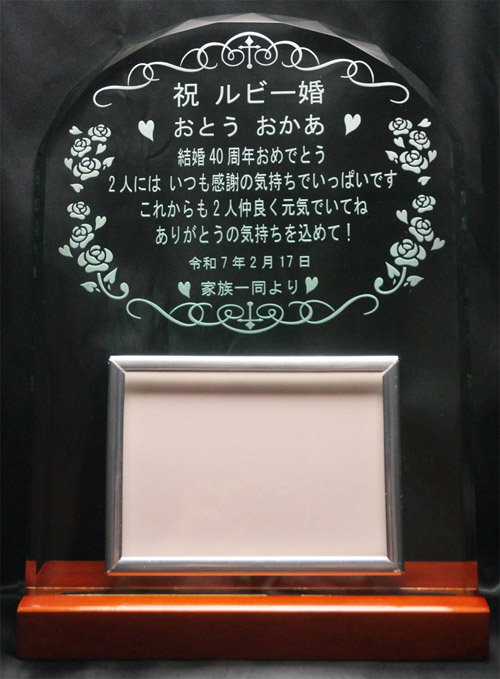 祝 ルビー婚
おとう おかあ
結婚40周年おめでとう
2人には いつも感謝の気持ちでいっぱいです
これからも2人仲良く元気でいてね
ありがとうの気持ちを込めて!
令和7年2月17日
家族一同より